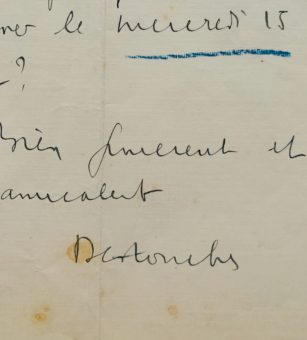 ner le mercredi 15
?
Bien sincèrement et
amicalement
Destouches